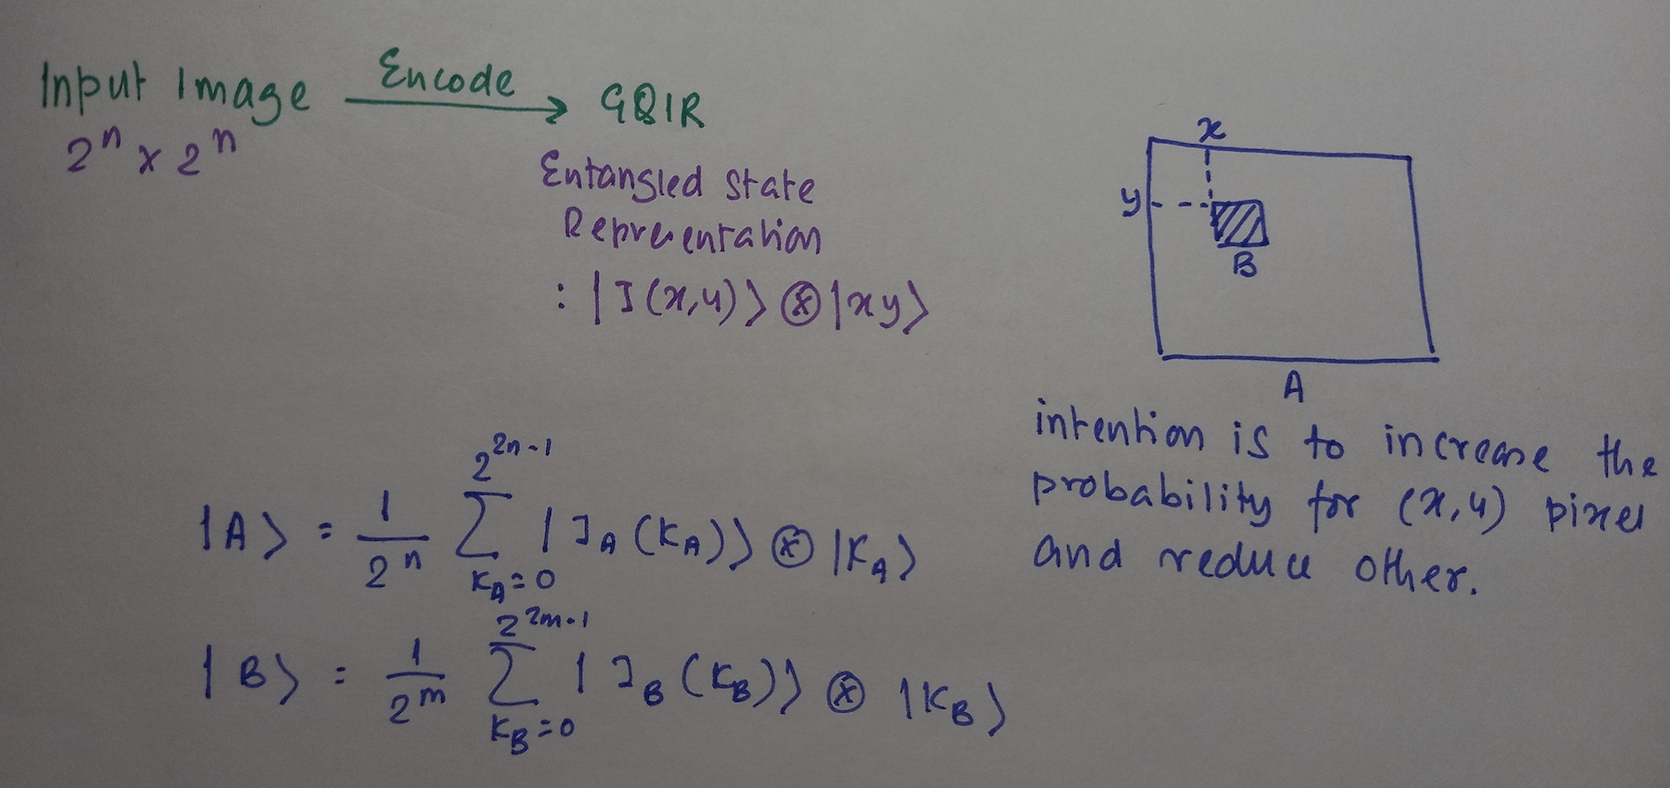 Input Image Encode → GQIR
2ⁿ x 2ⁿ
Entangled State
Representation
: |I(x,y)⟩ ⊗ |xy⟩
x
y
B
A
intention is to increase the
probability for (x,y) pixel
and reduce other.
|A⟩ = 1/2ⁿ Σ_{K_A=0}^{2^{2n-1}} |I_A(K_A)⟩ ⊗ |K_A⟩
|B⟩ = 1/2ᵐ Σ_{K_B=0}^{2^{2m-1}} |I_B(K_B)⟩ ⊗ |K_B⟩